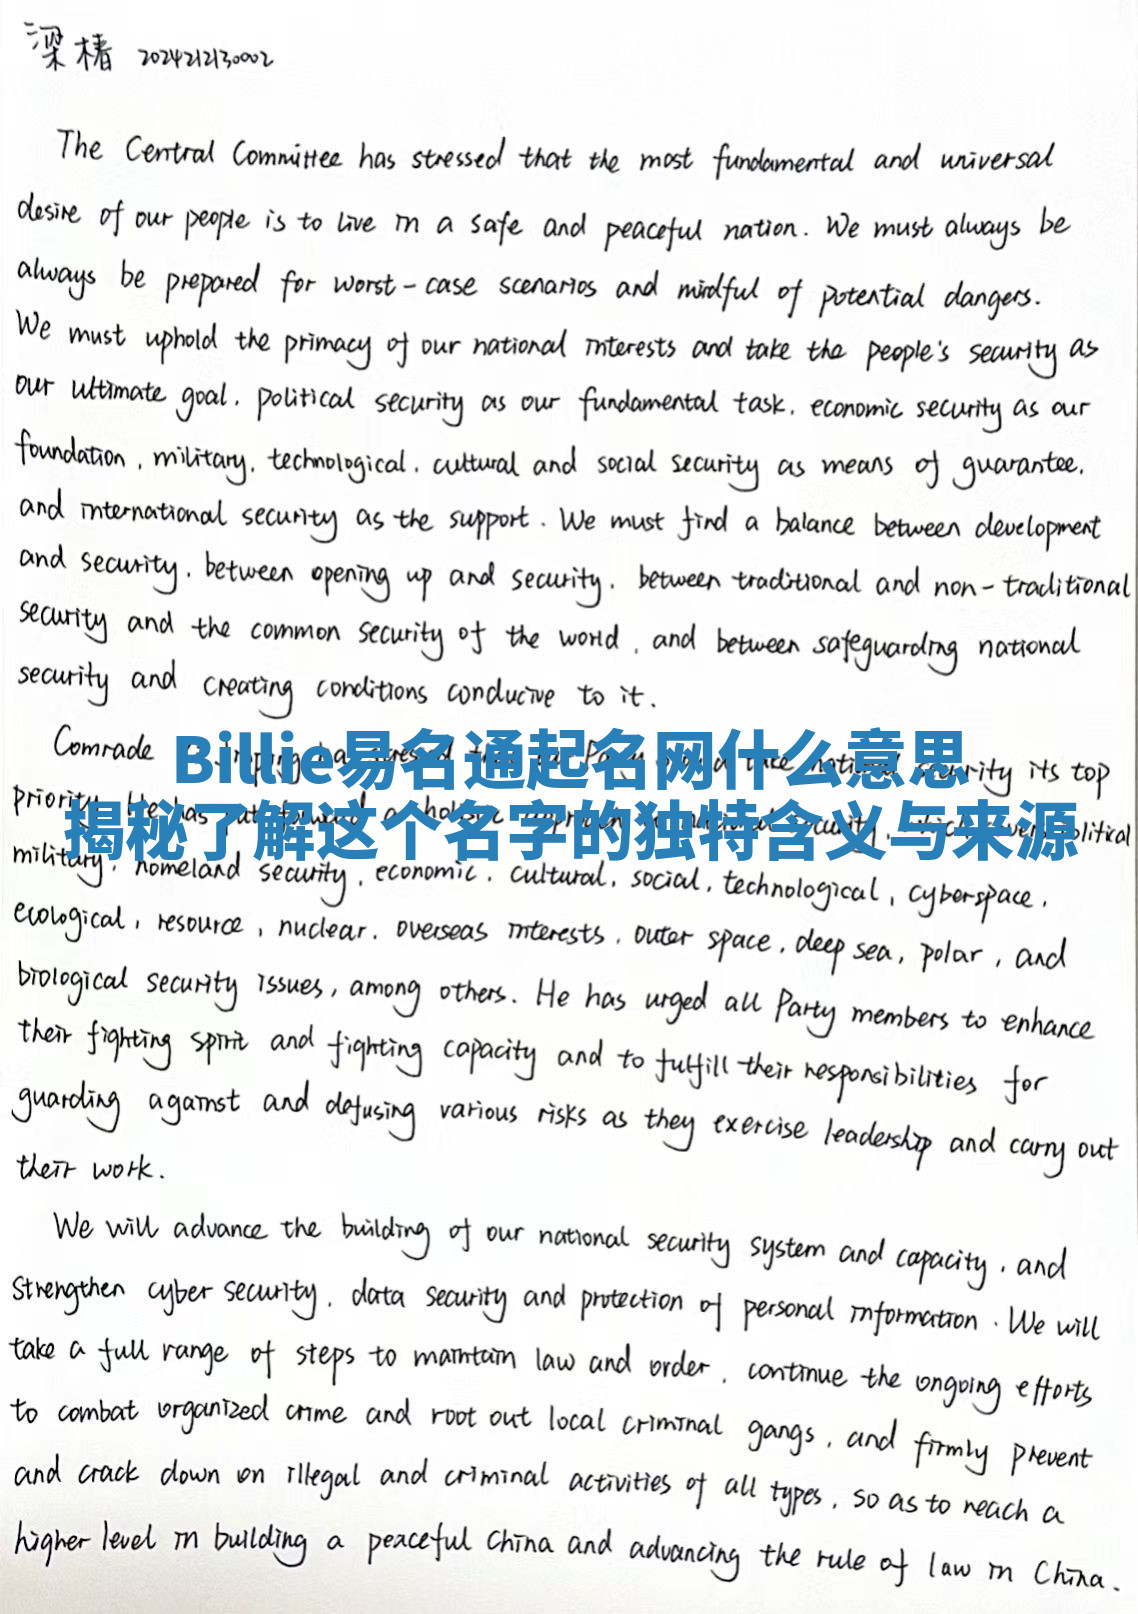 梁椿 2024212130002
The Central Committee has stressed that the most fundamental and universal
desire of our people is to live in a safe and peaceful nation. We must always be
always be prepared for worst-case scenarios and mindful of potential dangers.
We must uphold the primacy of our national interests and take the people's security as
our ultimate goal, political security as our fundamental task, economic security as our
foundation, military, technological, cultural and social security as means of guarantee,
and international security as the support. We must find a balance between development
and security, between opening up and security, between traditional and non-traditional
security and the common security of the world, and between safeguarding national
security and creating conditions conducive to it.
Comrade security its top
Billie易名通起名网什么意思
priority. He has
揭秘了解这个名字的独特含义与来源
military, homeland security, economic, cultural, social, technological, cyberspace,
ecological, resource, nuclear, overseas interests, outer space, deep sea, polar, and
biological security issues, among others. He has urged all Party members to enhance
their fighting spirit and fighting capacity and to fulfill their responsibilities for
guarding against and defusing various risks as they exercise leadership and carry out
their work.
We will advance the building of our national security system and capacity, and
strengthen cyber security, data security and protection of personal information. We will
take a full range of steps to maintain law and order, continue the ongoing efforts
to combat organized crime and root out local criminal gangs, and firmly prevent
and crack down on illegal and criminal activities of all types, so as to reach a
higher level in building a peaceful China and advancing the rule of law in China.